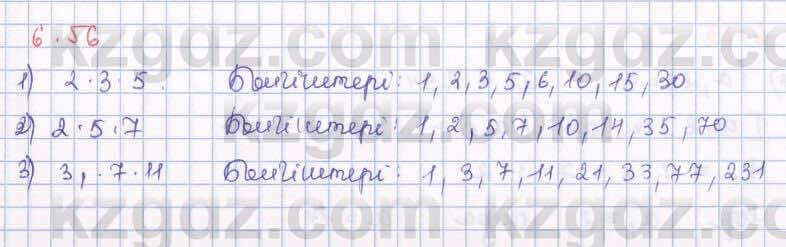 6.56
1) 2·3·5. Бөлгіштері: 1, 2, 3, 5, 6, 10, 15, 30
2) 2·5·7 Бөлгіштері: 1, 2, 5, 7, 10, 14, 35, 70
3) 3,·7·11 Бөлгіштері: 1, 3, 7, 11, 21, 33, 77, 231
kzgdz.com